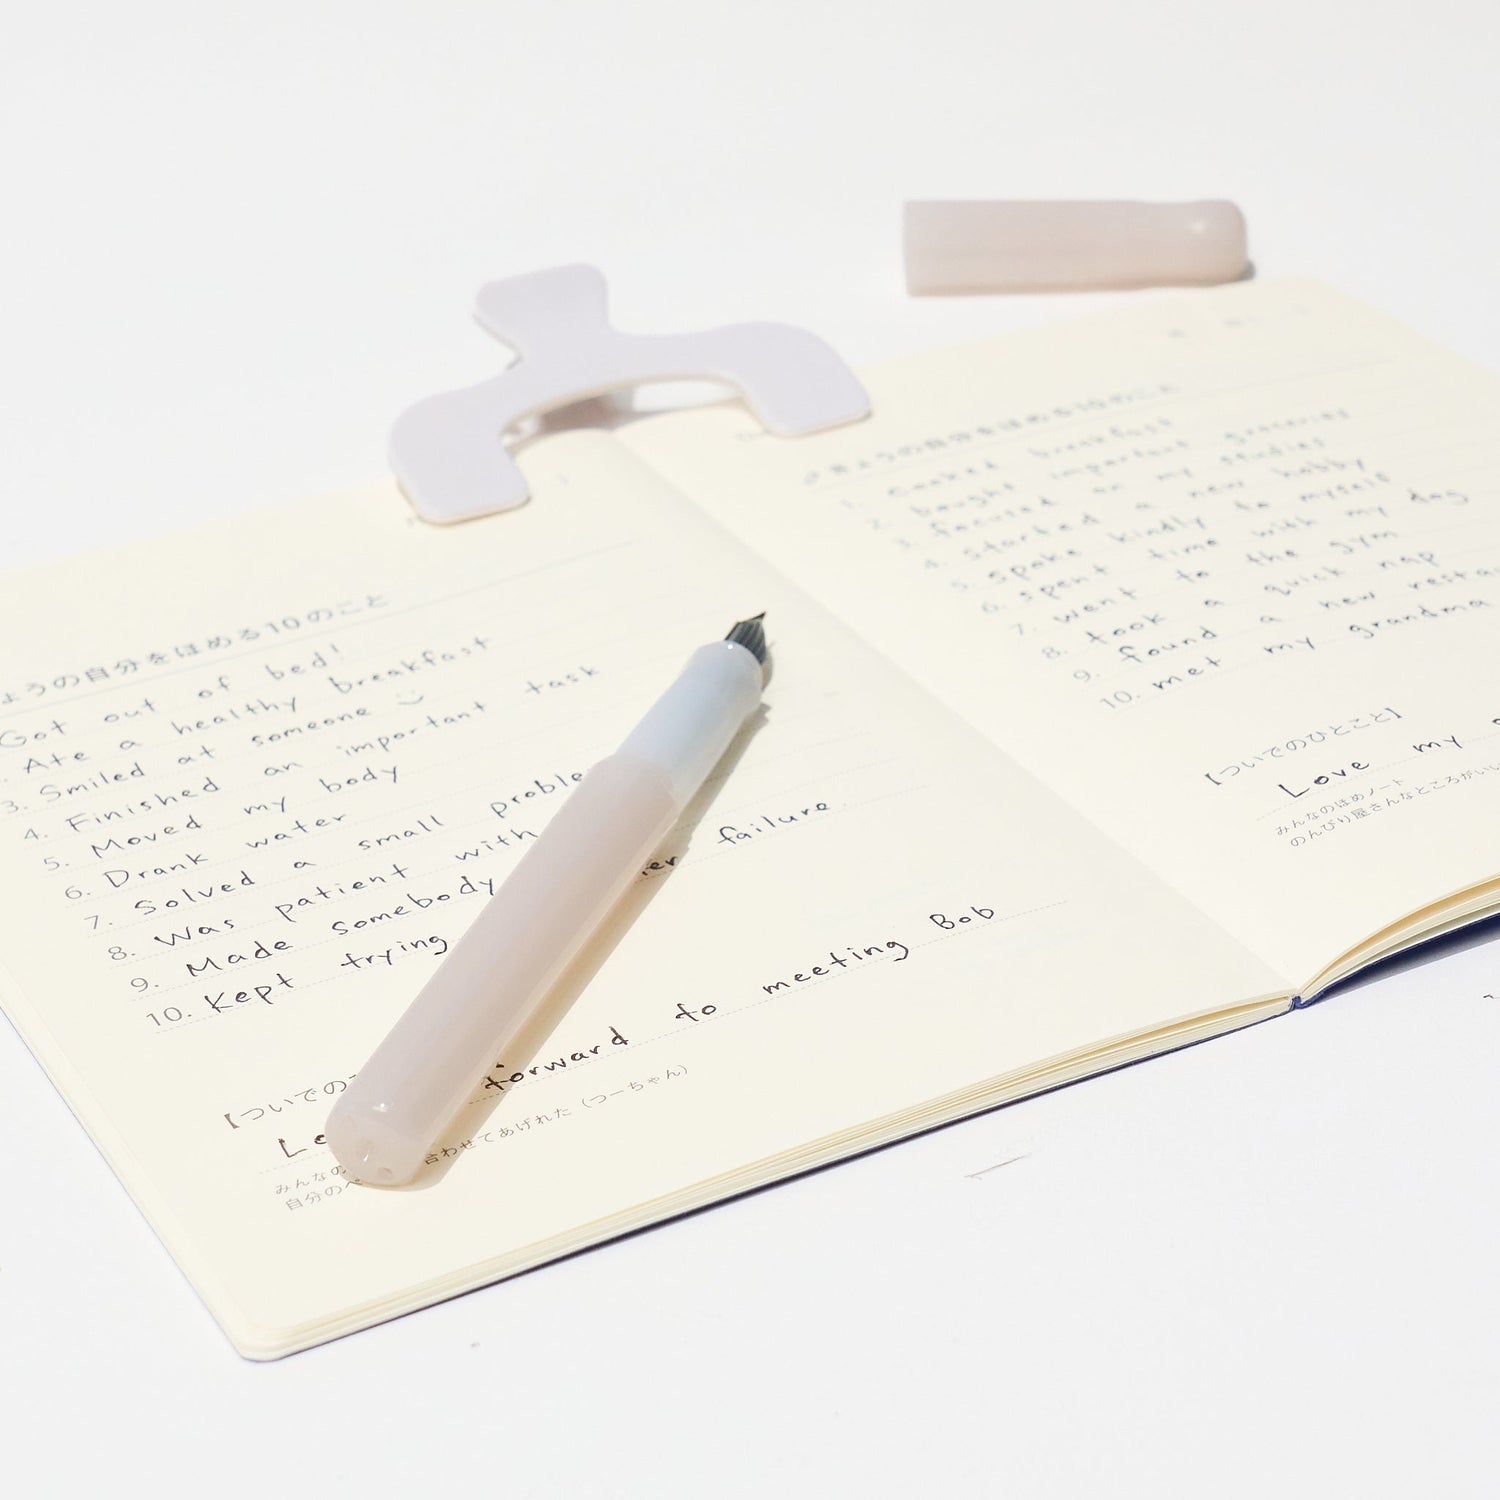 ょうの自分をほめる10のこと
Got out of bed!
Ate a healthy breakfast
3. Smiled at someone
4. Finished an important task
5. Moved my body
6. Drank water
7. Solved a small proble
8. Was patient with
9. Made somebody failure
10. Kept trying
【ついでの
forward to meeting Bob
みんなの
合わせてあげれた（つーちゃん）
自分のペ
きょうの自分をほめる10のこと
1. cooked breakfast
2. bought important groceries
3. focused on my studies
4. started a new hobby
5. spoke kindly to myself
6. spent time with my dog
7. went to the gym
8. took a quick nap
9. found a new resta
10. met my grandma
【ついでのひとこと】
Love my
みんなのほめノート
のんびり屋さんなところがいい